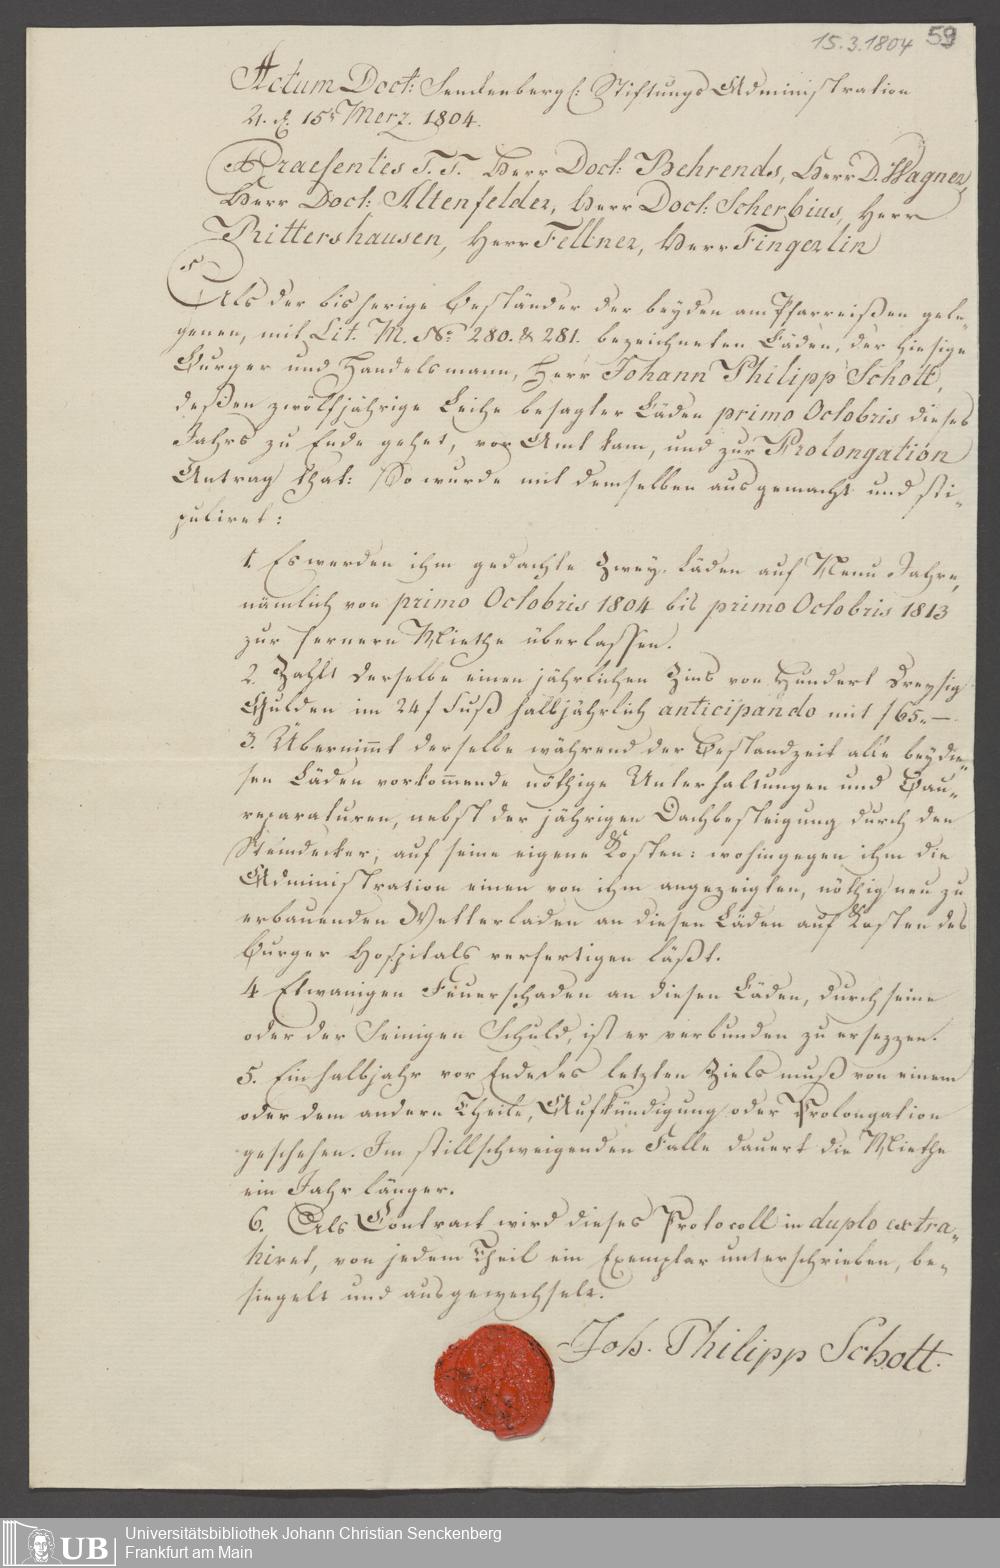 15.3.1804 59
Actum Doct: Senckenbergl: Stiftungs Administration
d. 15t Merz. 1804.
Praesentes T. T. Herr Doct: Behrends, Herr D. Wagner,
Herr Doct: Altenfelder, Herr Doct: Scherbius, Herr
Rittershausen, Herr Fellner, Herr Fingerlin
Als der bisherige Beständer der beyden am Pfarreißen gele„
genen, mit Lit. M. No: 280. & 281. bezeichneten Läden, der hiesige
Burger und Handelsmann, Herr Johann Philipp Schott,
deßen zwölfjährige Leihe besagter Läden primo Octobris dieses
Jahrs zu Ende gehet, vor Amt kam, und zur Prolongation
Antrag that: So wurde mit demselben ausgemacht und sti„
puliret:
1. Es werden ihm gedachte zwey Läden auf Neun Jahre,
nämlich von primo Octobris 1804 bis primo Octobris 1813
zur fernern Miethe überlassen.
2. Zahlt derselbe einen jährlichen Zins von Hundert Dreysig
Gulden im 24 f Fuß halbjährlich anticipando mit f 65.„—
3. Übernimmt derselbe während der Bestandzeit alle bey die„
sen Läden vorkom̄ende nöthige Unterhaltungen und Bau„
reparaturen, nebst der jährigen Dachbesteigung durch den
Steindecker, auf seine eigene Kosten: wohingegen ihm die
Administration einen von ihm angezeigten, nöthig neu zu
erbauenden Wetterladen an diesen Läden auf Kosten des
Burger Hospitals verfertigen läßt.
4 Etwanigen Feuerschaden an diesen Läden, durch seine
oder der Seinigen Schuld, ist er verbunden zu ersezzen.
5. Ein halbjahr vor Ende des letzten Ziels muß von einem
oder dem andern Theile, Aufkündigung oder Prolongation
geschehen. Im stillschweigenden Falle dauert die Miethe
ein Jahr länger.
6. Als Contract wird dieses Protocoll in duplo extra„
hiret, von jedem Theil ein Exemplar unterschrieben, be„
siegelt und ausgewechselt.
Joh. Philipp Schott.
UB Universitätsbibliothek Johann Christian Senckenberg
Frankfurt am Main